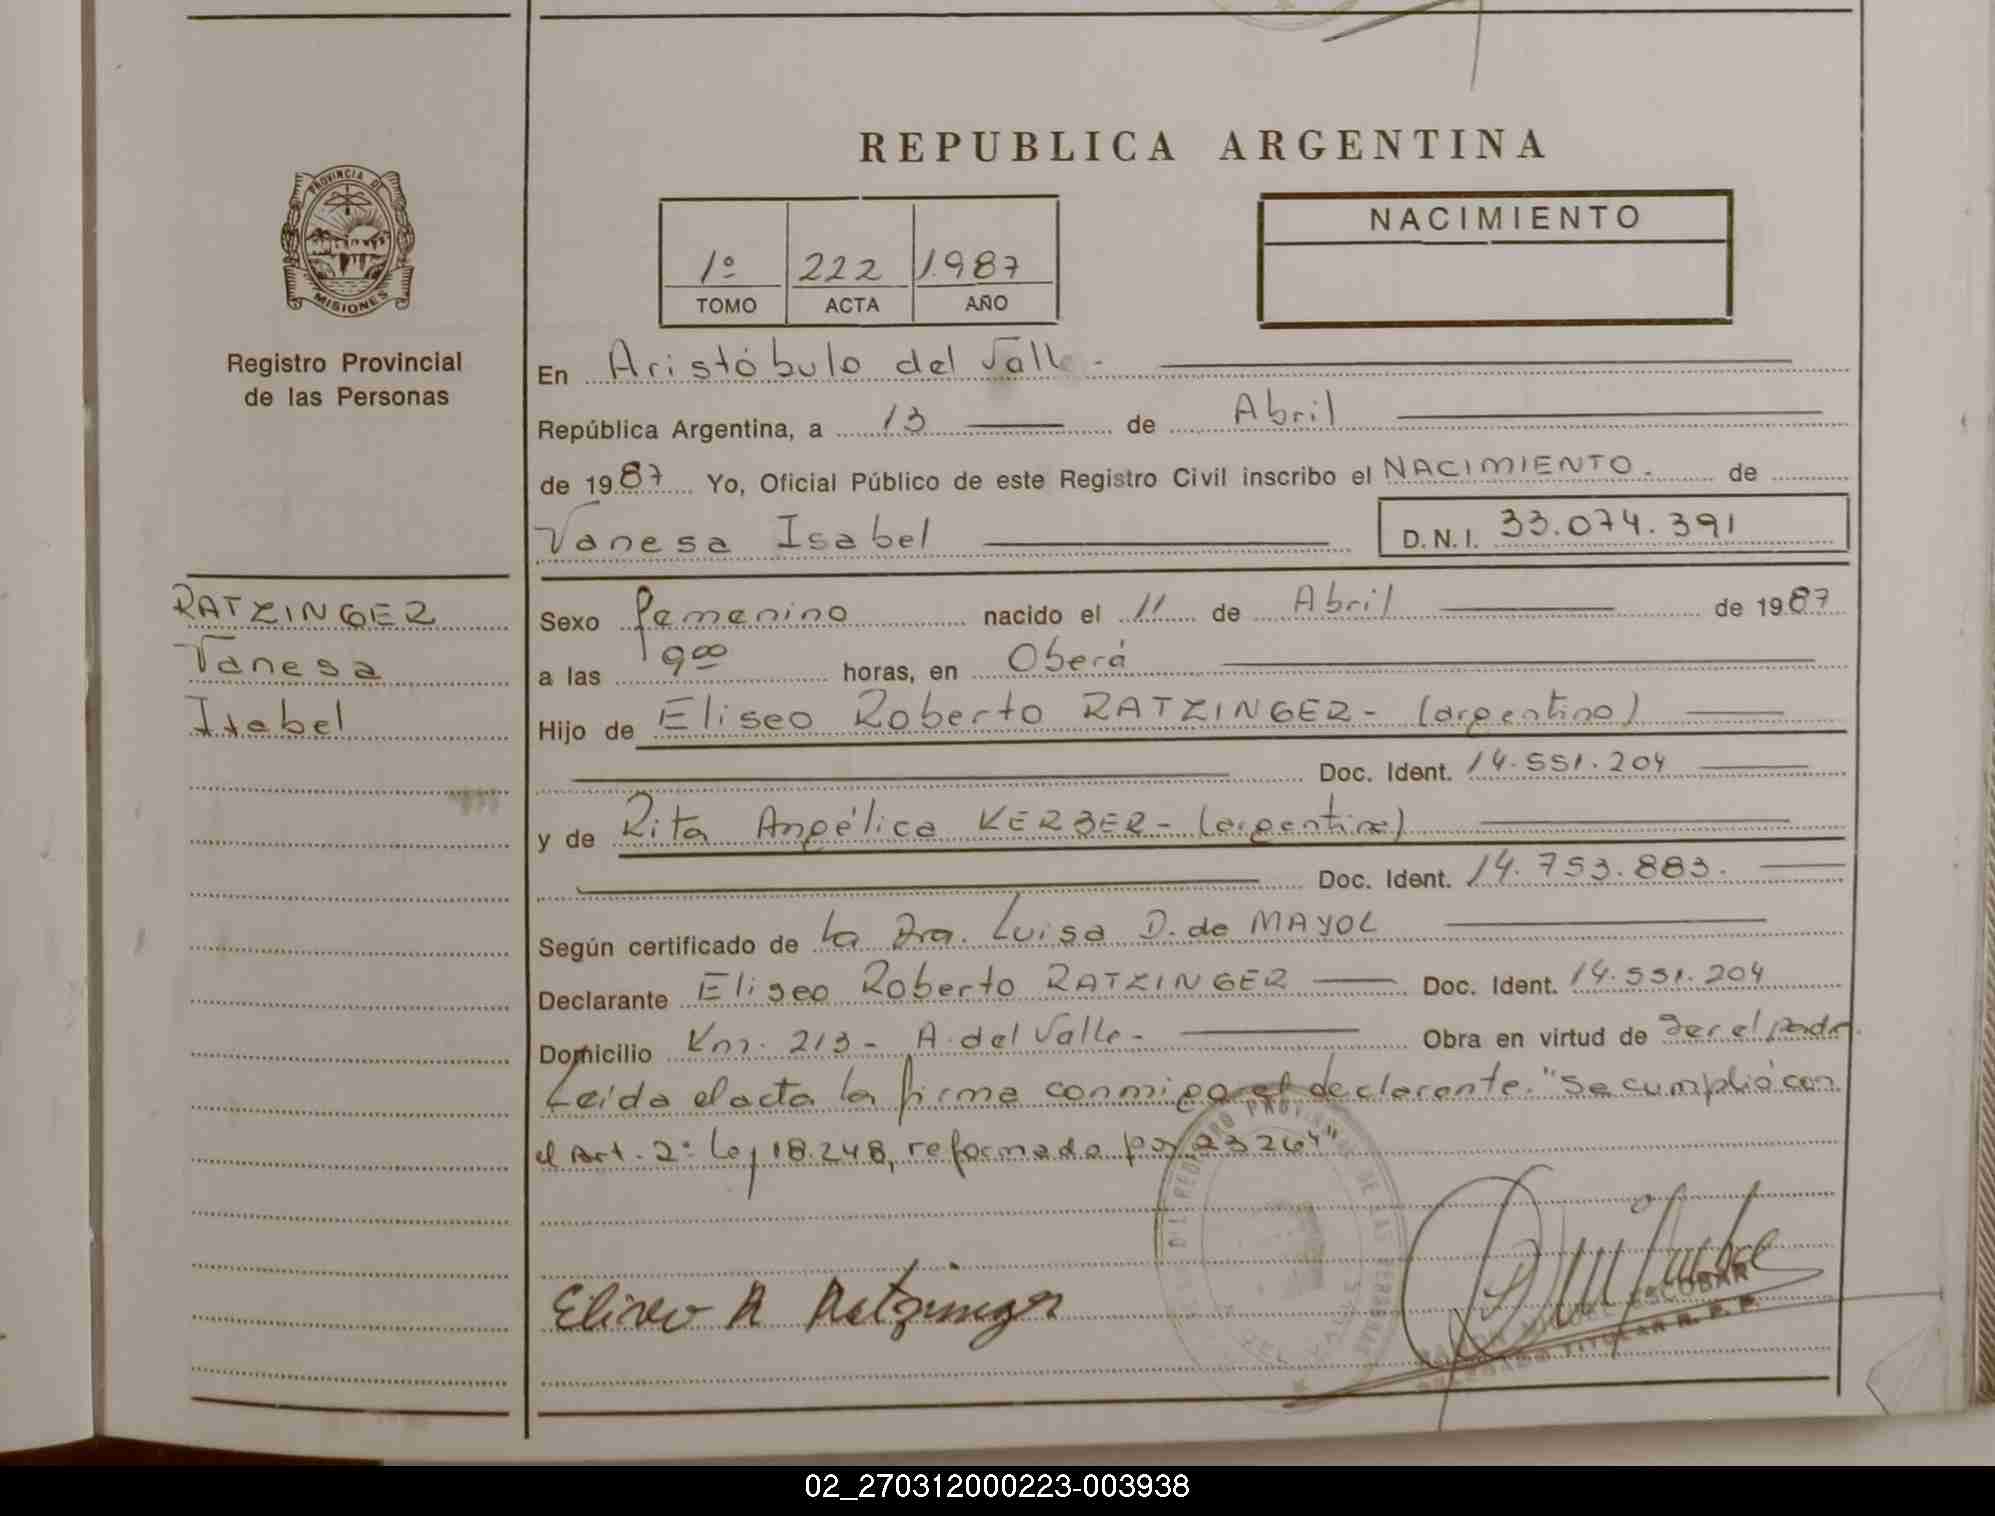 REPUBLICA ARGENTINA
PROVINCIA DE
MISIONES
Registro Provincial
de las Personas
1º 222 1987
TOMO ACTA AÑO
NACIMIENTO
En Aristóbulo del Valle -
República Argentina, a 13 de Abril
de 1987 Yo, Oficial Público de este Registro Civil inscribo el NACIMIENTO. de
Vanesa Isabel D.N.I. 33.074.391
RATZINGER
Vanesa
Isabel
Sexo femenino nacido el 11 de Abril de 1987
a las 9 00 horas, en Oberá
Hijo de Eliseo Roberto RATZINGER - (argentino)
Doc. Ident. 14.551.204
y de Rita Angélica KERBER - (argentina)
Doc. Ident. 14.753.883.
Según certificado de la Dra. Luisa D. de MAYOL
Declarante Eliseo Roberto RATZINGER Doc. Ident. 14.551.204
Domicilio Km. 213 - A. del Valle - Obra en virtud de ser el padre.
Leída el acta la firma conmigo el declarante. "Se cumplió con
el Art. 2º ley 18.248, reformada por 23264"
Eliseo R Ratzinger
DEL REGISTRO PROVINCIAL DE LAS PERSONAS
DEL VALLE
MIGUEL ESCOBAR
DELEGADO TITULAR R. P. P.
02_270312000223-003938